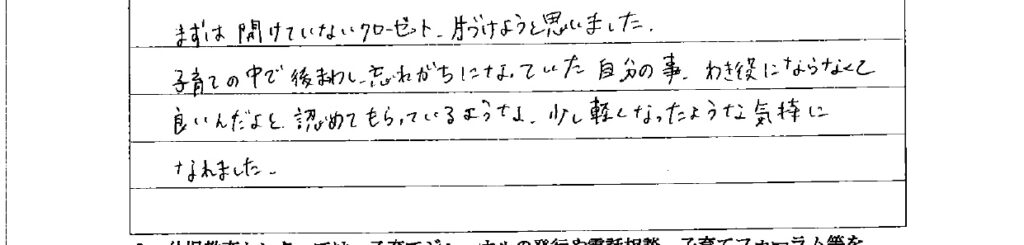 まずは開けていないクローゼット、片づけようと思いました。
子育ての中で後まわし、忘れがちになっていた自分の事、わき役にならなくて
良いんだよと、認めてもらっているような、少し軽くなったような気持に
なれました。